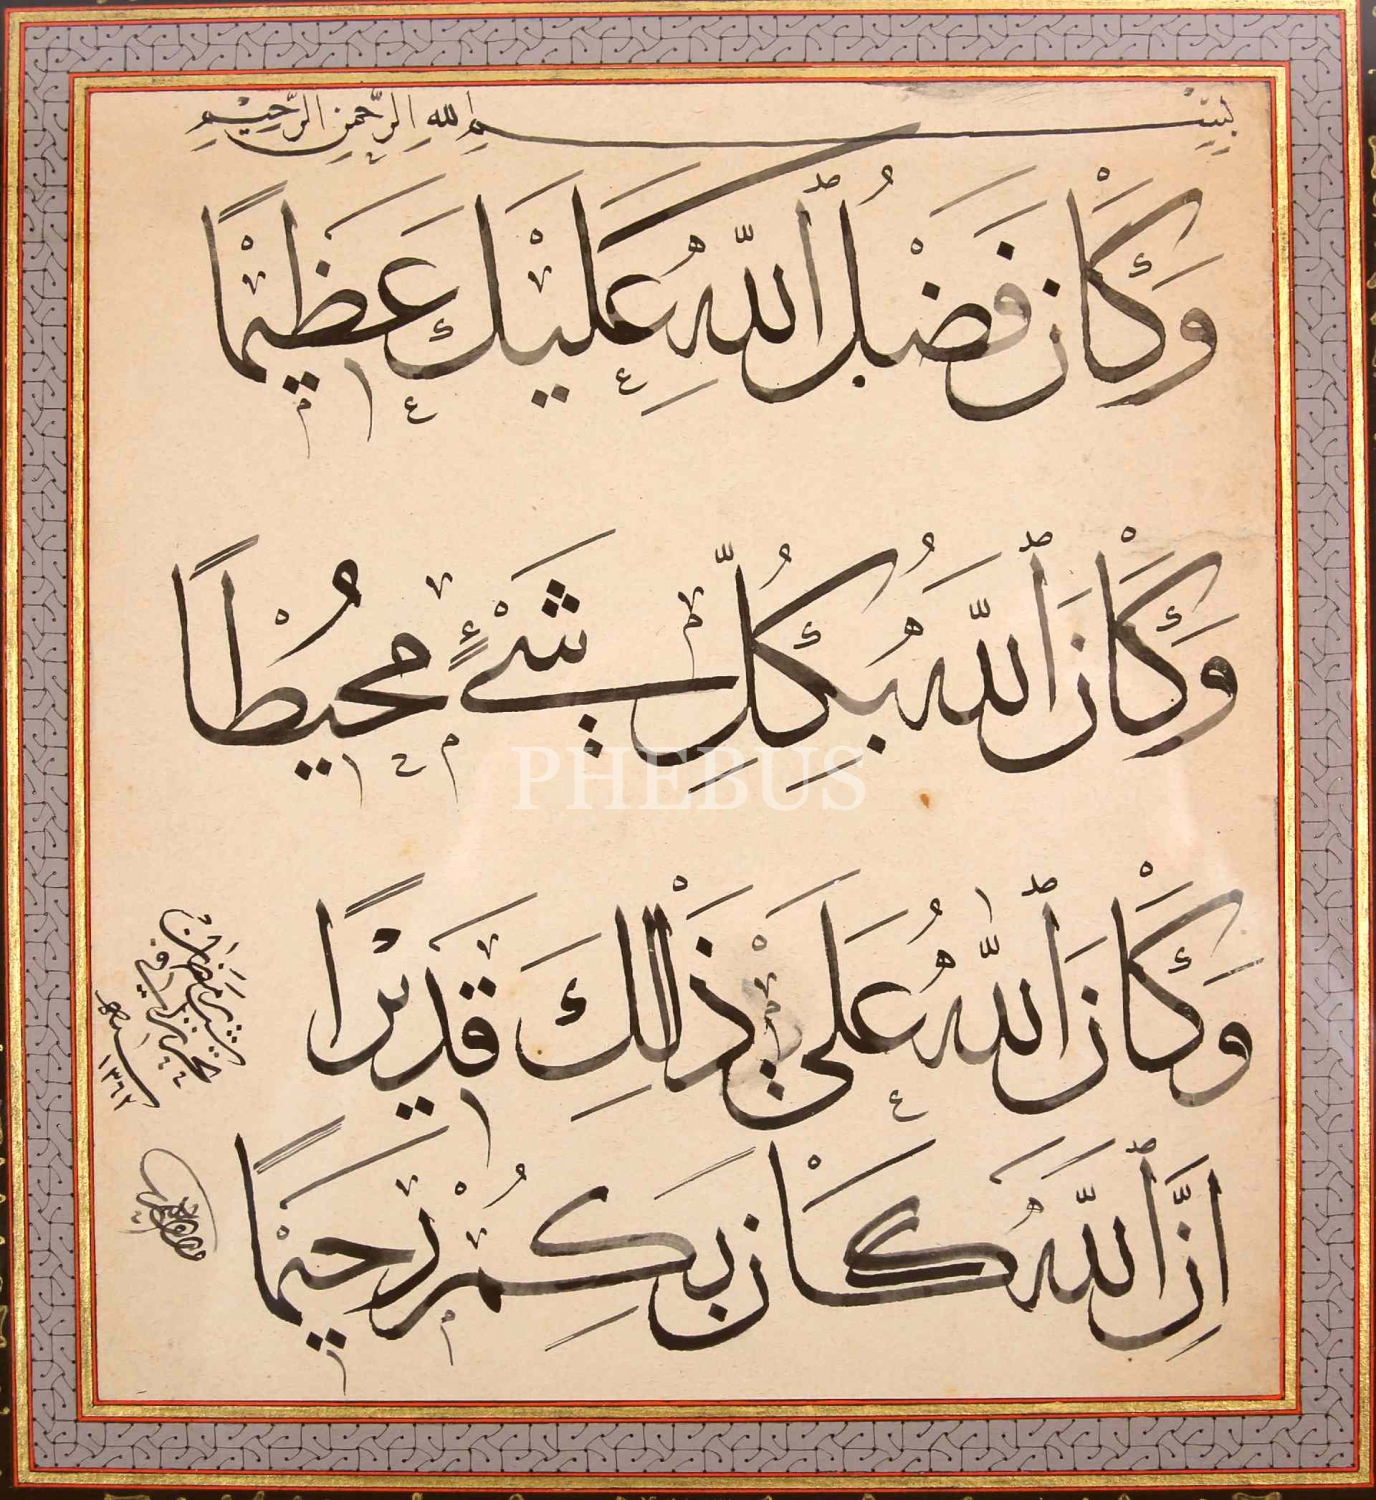 بِسْمِ اللهِ الرَّحْمٰنِ الرَّحِيمِ
وَكَانَ فَضْلُ ٱللّٰهِ عَلَيْكَ عَظِيْمًا
وَكَانَ ٱللّٰهُ بِكُلِّ شَیْءٍ مُحِيْطًا
PHEBUS
وَكَانَ ٱللّٰهُ عَلَى ذٰلِكَ قَدِيْرًا
اِنَّ ٱللّٰهَ كَانَ بِكُمْ رَحِيْمًا
١٣٦٢